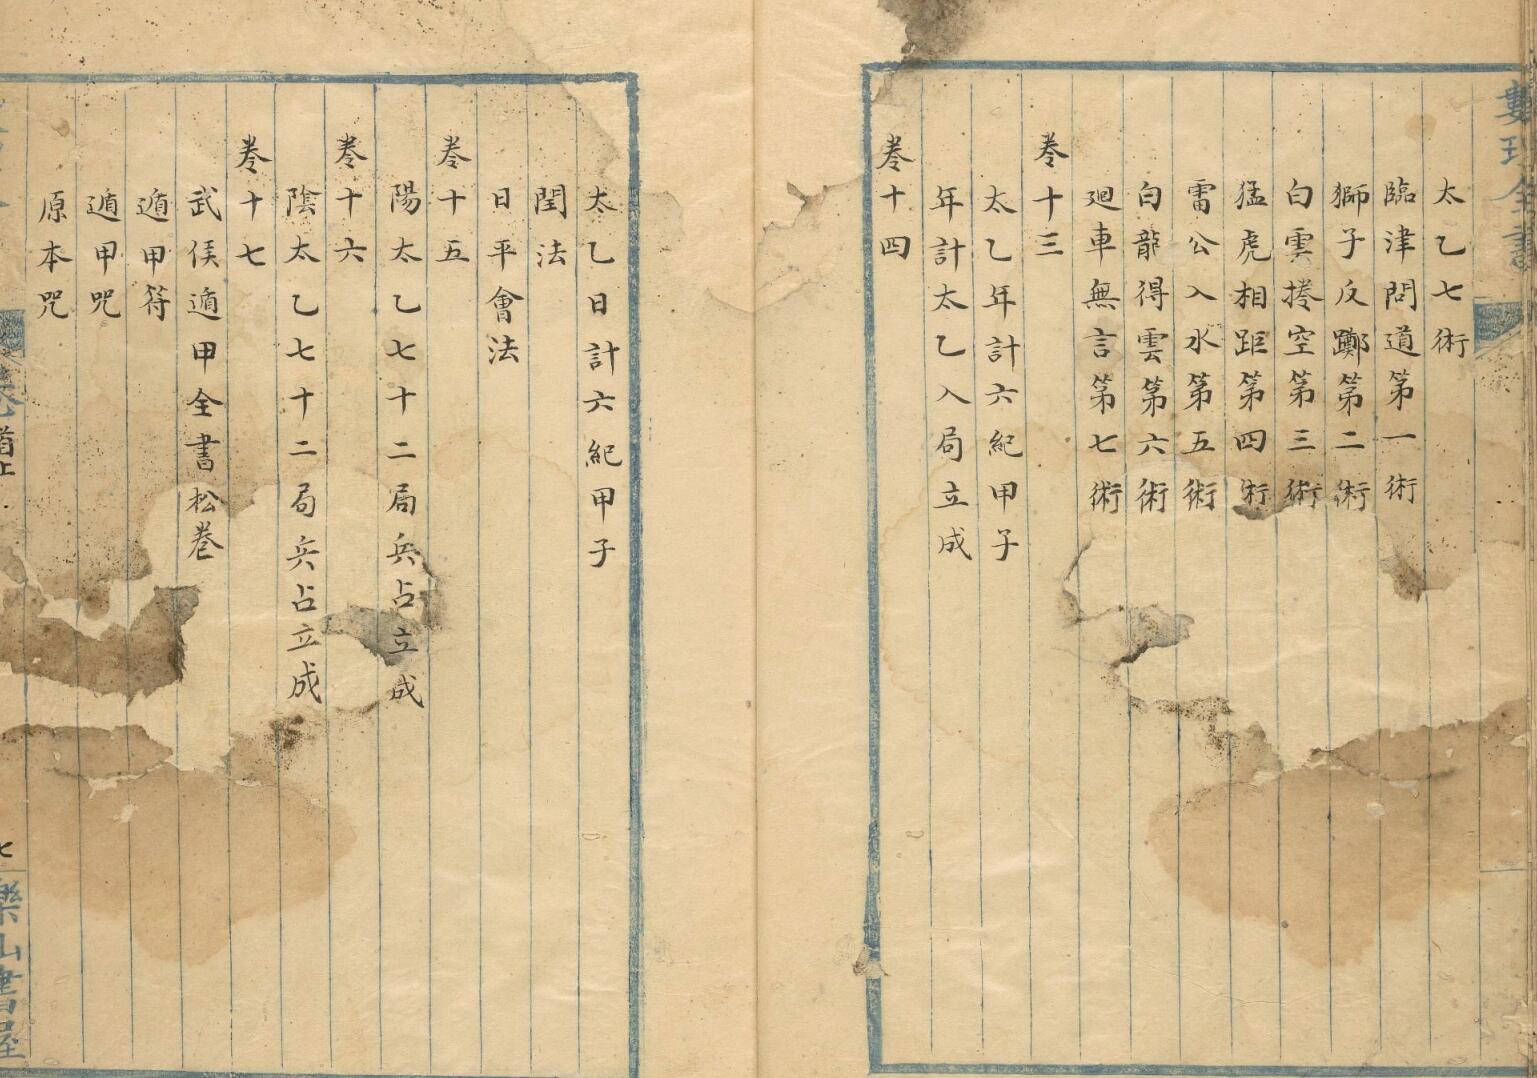 數理全書
太乙七術
臨津問道第一術
獅子反躑第二術
白雲捲空第三術
猛虎相距第四術
雷公入水第五術
白龍得雲第六術
廻車無言第七術
卷十三
太乙年計六紀甲子
年計太乙入局立成
卷十四
太乙日計六紀甲子
閏法
日平會法
卷十五
陽太乙七十二局兵占立成
卷十六
陰太乙七十二局兵占立成
卷十七
武侯遁甲全書松卷
遁甲符
遁甲咒
原本咒
卷首上
七
樂山書屋